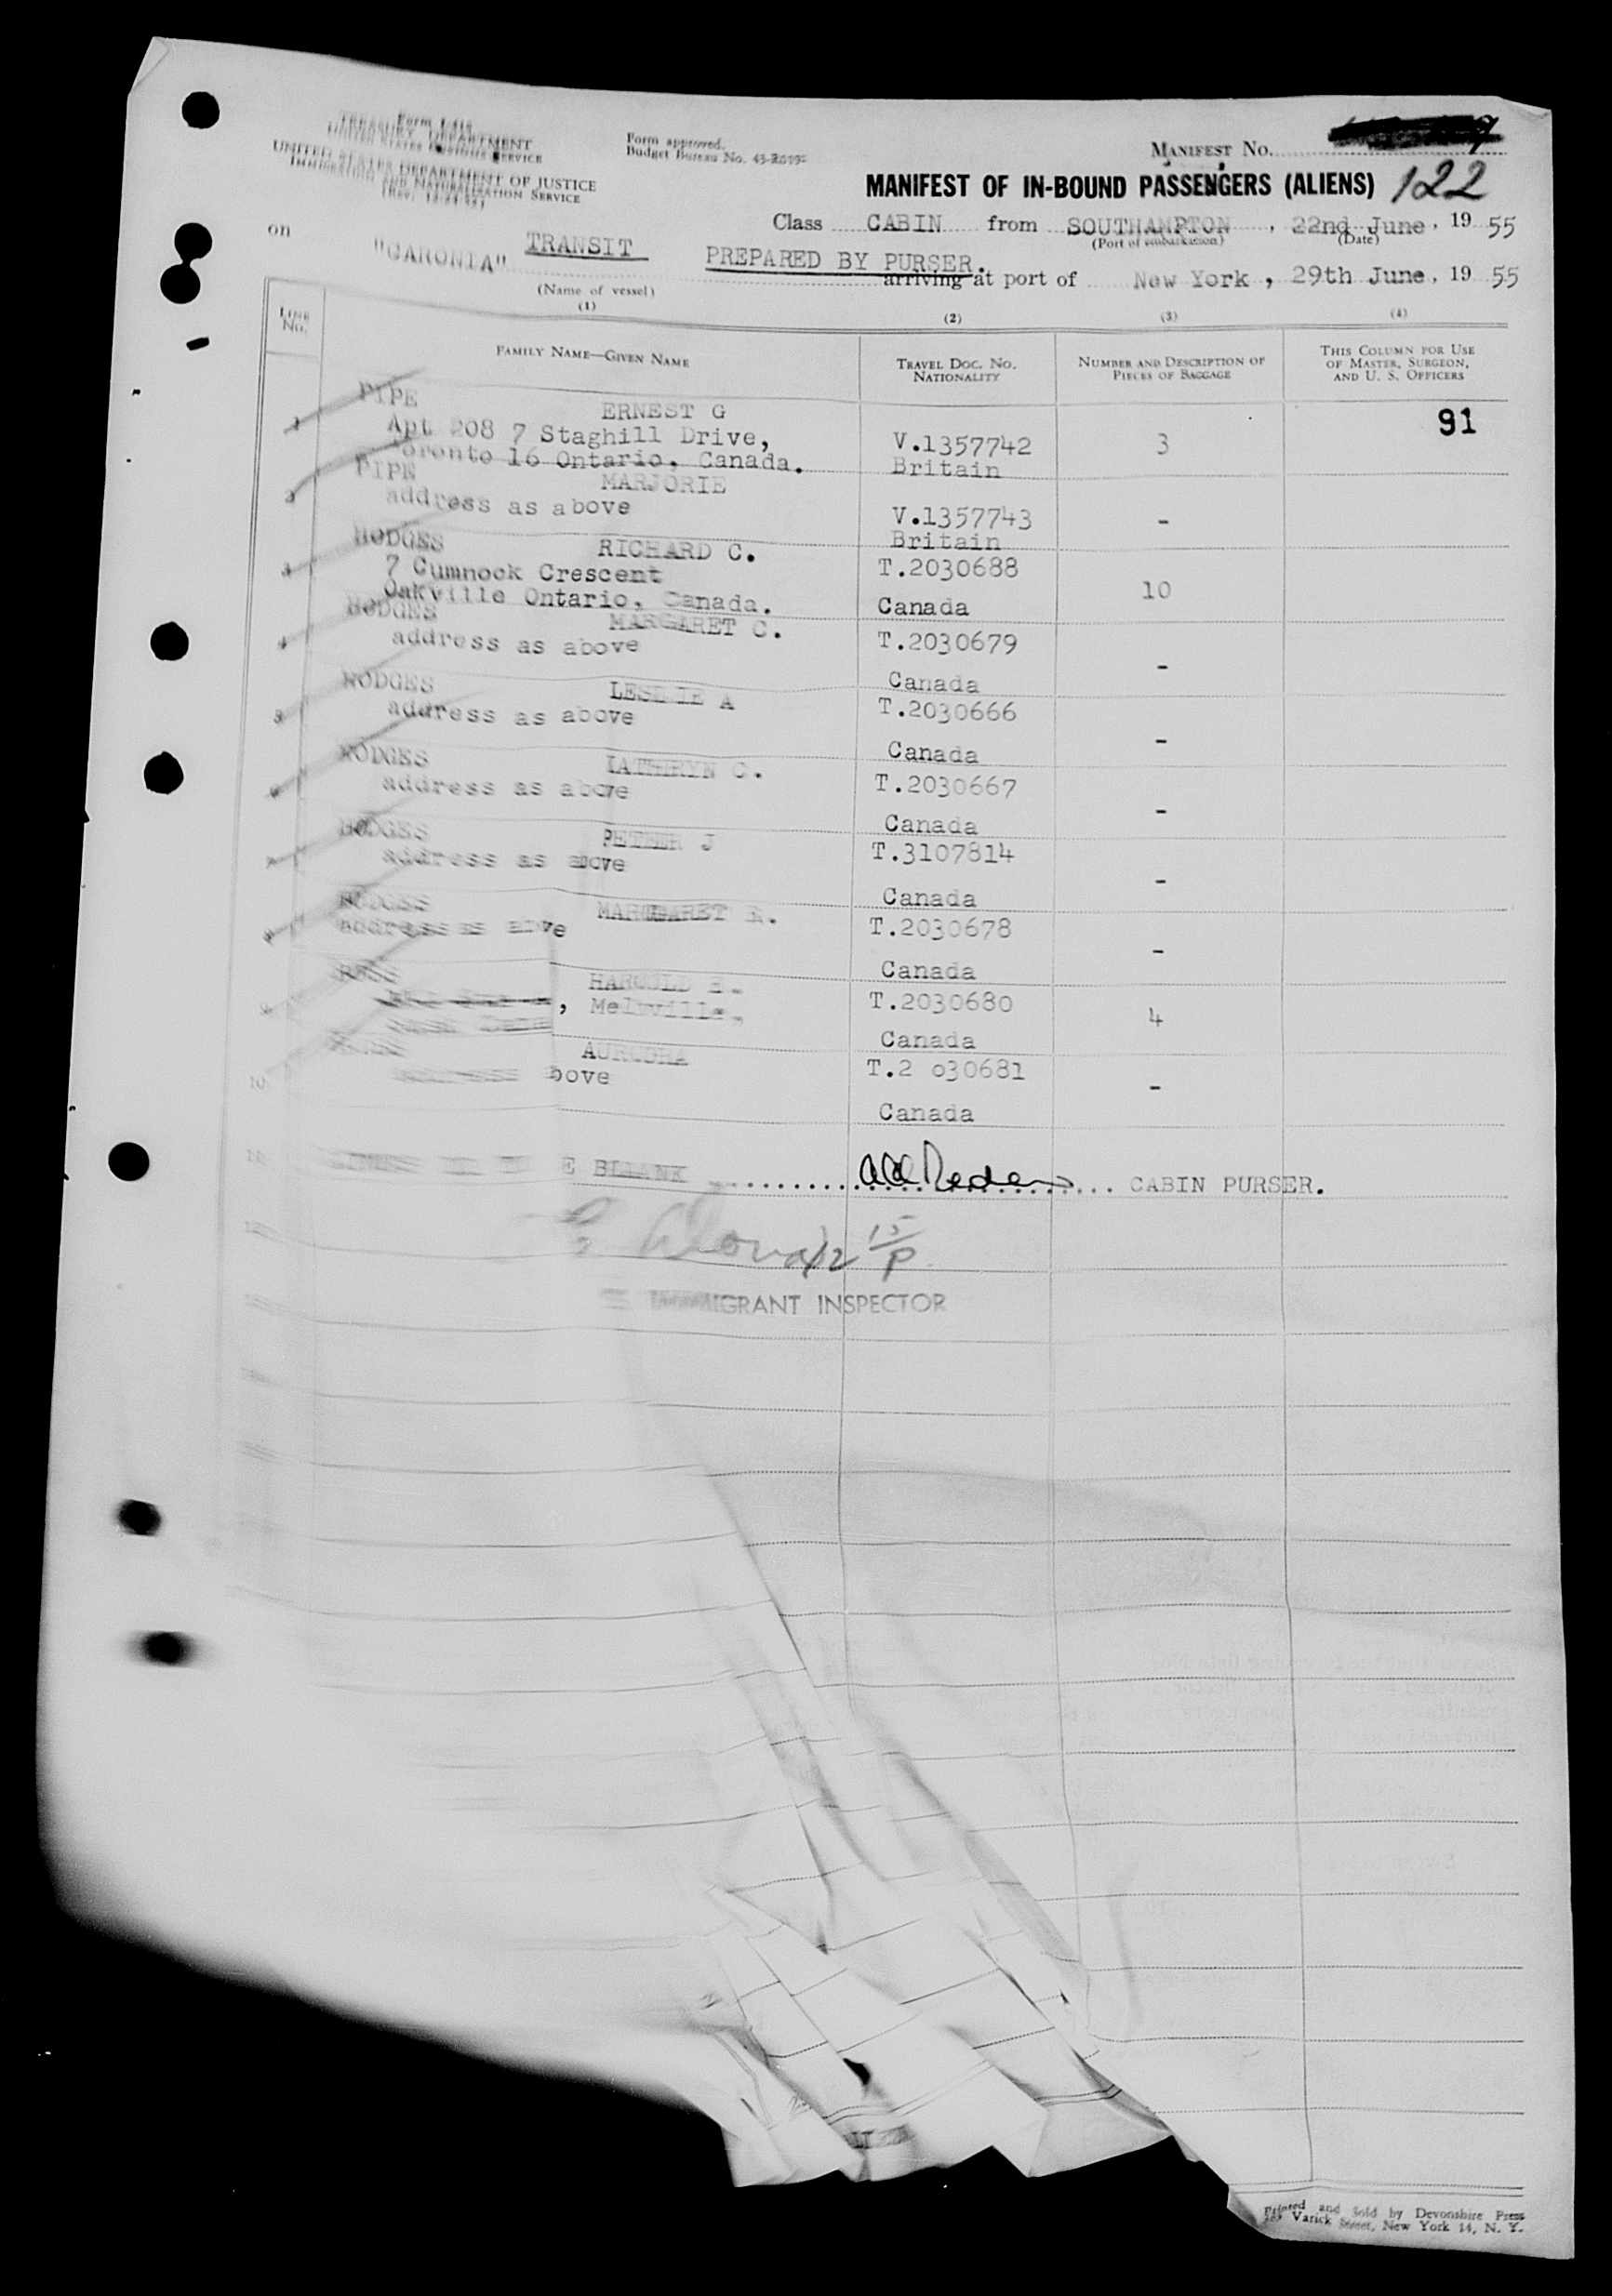 Form I-415
TREASURY DEPARTMENT
UNITED STATES CUSTOMS SERVICE
UNITED STATES DEPARTMENT OF JUSTICE
IMMIGRATION AND NATURALIZATION SERVICE
Form approved.
Budget Bureau No. 43-
MANIFEST No.
MANIFEST OF IN-BOUND PASSENGERS (ALIENS) 122
Class CABIN from SOUTHAMPTON, 22nd June, 19 55
(Port of embarkation) (Date)
on "CARONIA" TRANSIT PREPARED BY PURSER.
arriving at port of New York, 29th June, 19 55
(Name of vessel)
(1) (2) (3) (4)
LINE No.
FAMILY NAME—GIVEN NAME
TRAVEL DOC. NO. NATIONALITY
NUMBER AND DESCRIPTION OF PIECES OF BAGGAGE
THIS COLUMN FOR USE OF MASTER, SURGEON, AND U. S. OFFICERS
91
1 PIPE ERNEST G
Apt 208 7 Staghill Drive, V.1357742 3
Toronto 16 Ontario, Canada. Britain
2 PIPE MARJORIE
address as above V.1357743 -
Britain
3 HODGES RICHARD C. T.2030688
7 Cumnock Crescent 10
Oakville Ontario, Canada. Canada
4 HODGES MARGARET C. T.2030679
address as above -
Canada
5 HODGES LESLIE A T.2030666
address as above -
Canada
6 HODGES KATHRYN C. T.2030667
address as above -
Canada
7 HODGES PETER J T.3107814
address as above -
Canada
8 HODGES MARGARET T.2030678
address as above -
Canada
9 ROSS HAROLD E. T.2030680
, 4
Canada
10 T.2 030681
above -
Canada
11 BLLANK CABIN PURSER.
12
IMMIGRANT INSPECTOR
Printed and Sold by Devonshire Press
Varick Street, New York 14, N. Y.